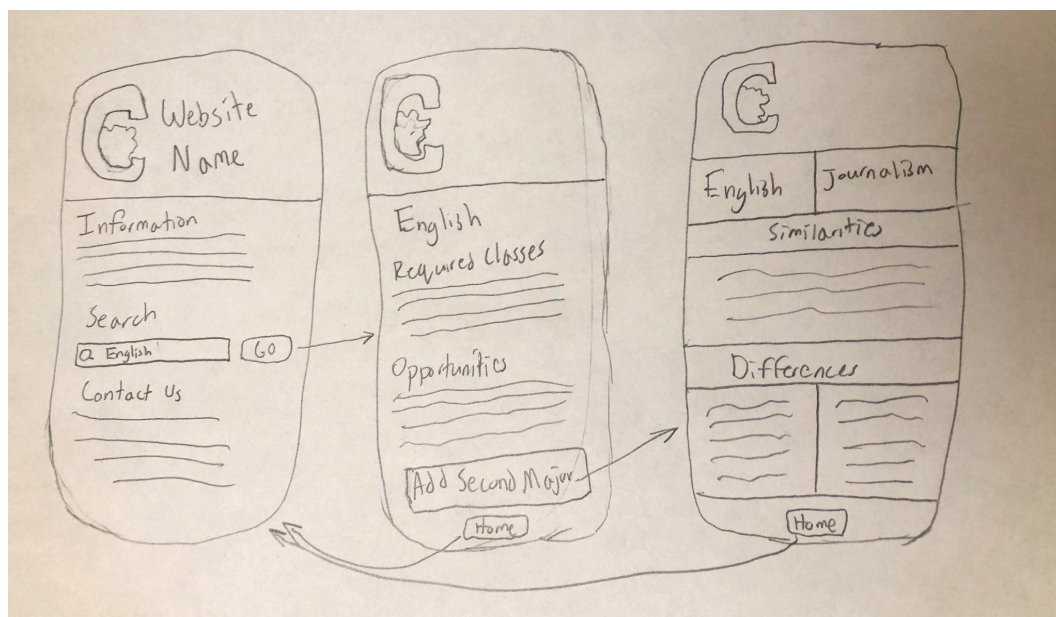 C Website
Name
Information
Search
English
GO
Contact Us
C
English
Required Classes
Opportunities
Add Second Major
Home
C
English
Journalism
Similarities
Differences
Home